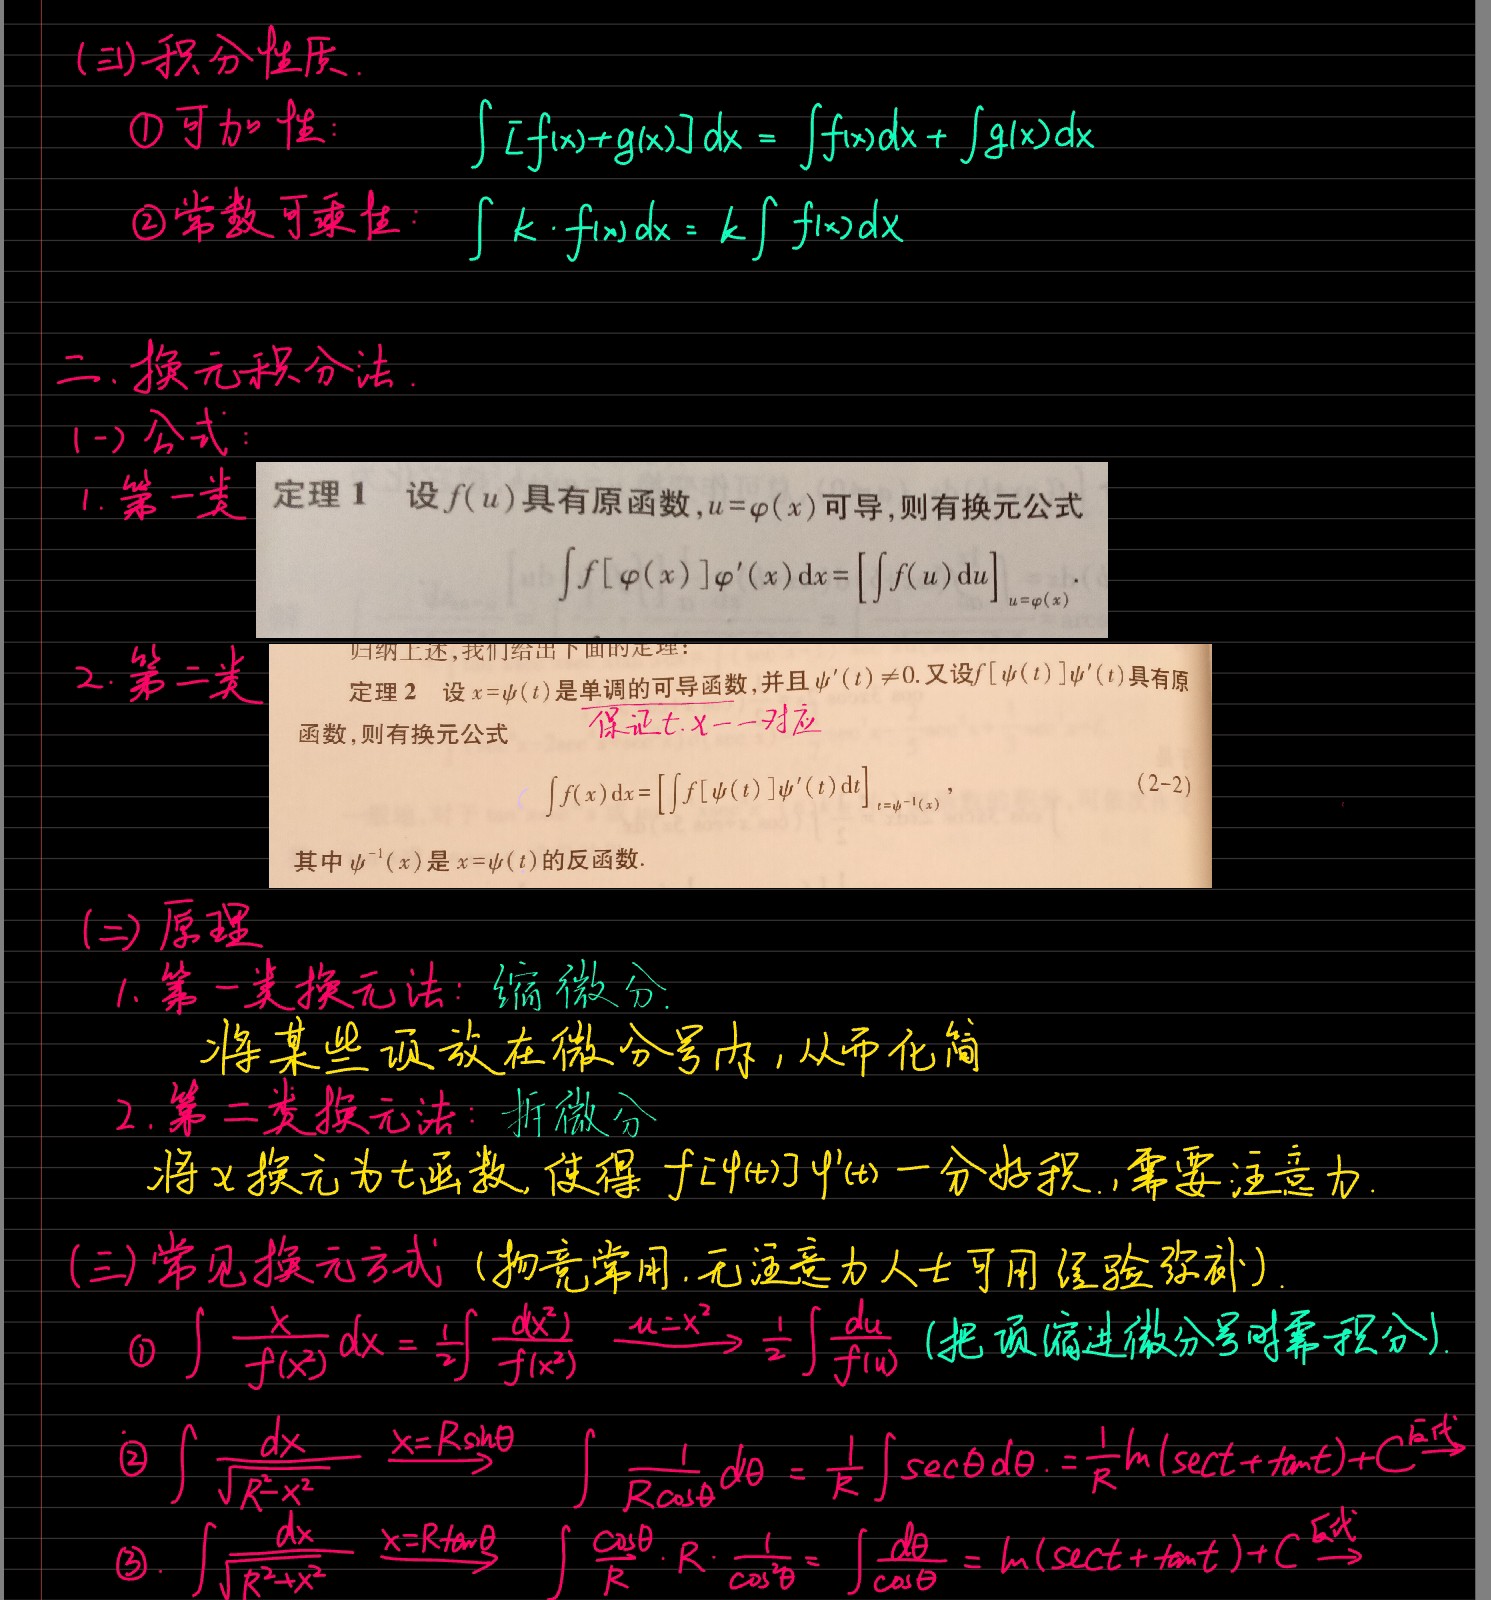 (三)积分性质.
①可加性: ∫[f(x)+g(x)]dx = ∫f(x)dx + ∫g(x)dx
②常数可乘性: ∫k·f(x)dx = k∫f(x)dx
二.换元积分法.
(一)公式:
1.第一类
定理1 设f(u)具有原函数,u=φ(x)可导,则有换元公式
∫f[φ(x)]φ′(x)dx=[∫f(u)du]u=φ(x).
2.第二类
归纳上述,我们给出下面的定理:
定理2 设x=ψ(t)是单调的可导函数,并且ψ′(t)≠0.又设f[ψ(t)]ψ′(t)具有原
保证t.x一一对应
函数,则有换元公式
∫f(x)dx=[∫f[ψ(t)]ψ′(t)dt]t=ψ⁻¹(x), (2-2)
其中ψ⁻¹(x)是x=ψ(t)的反函数.
(二)原理
1.第一类换元法: 缩微分.
将某些项放在微分号内,从而化简
2.第二类换元法: 折微分
将x换元为t函数,使得f[φ(t)]φ'(t)一分好积.,需要注意力.
(三)常见换元方式 (物竞常用.无注意力人士可用经验弥补).
① ∫ x/f(x²) dx = 1/2 ∫ d(x²)/f(x²) u=x²→ 1/2 ∫ du/f(u) (把项缩进微分号时需积分).
② ∫ dx/√(R²-x²) x=Rsinθ→ ∫ 1/(Rcosθ) dθ = 1/R ∫ secθdθ. = 1/R ln(sect+tant)+C 反代→
③. ∫ dx/√(R²+x²) x=Rtanθ→ ∫ cosθ/R · R · 1/cos²θ = ∫ dθ/cosθ = ln(sect+tant)+C 反代→